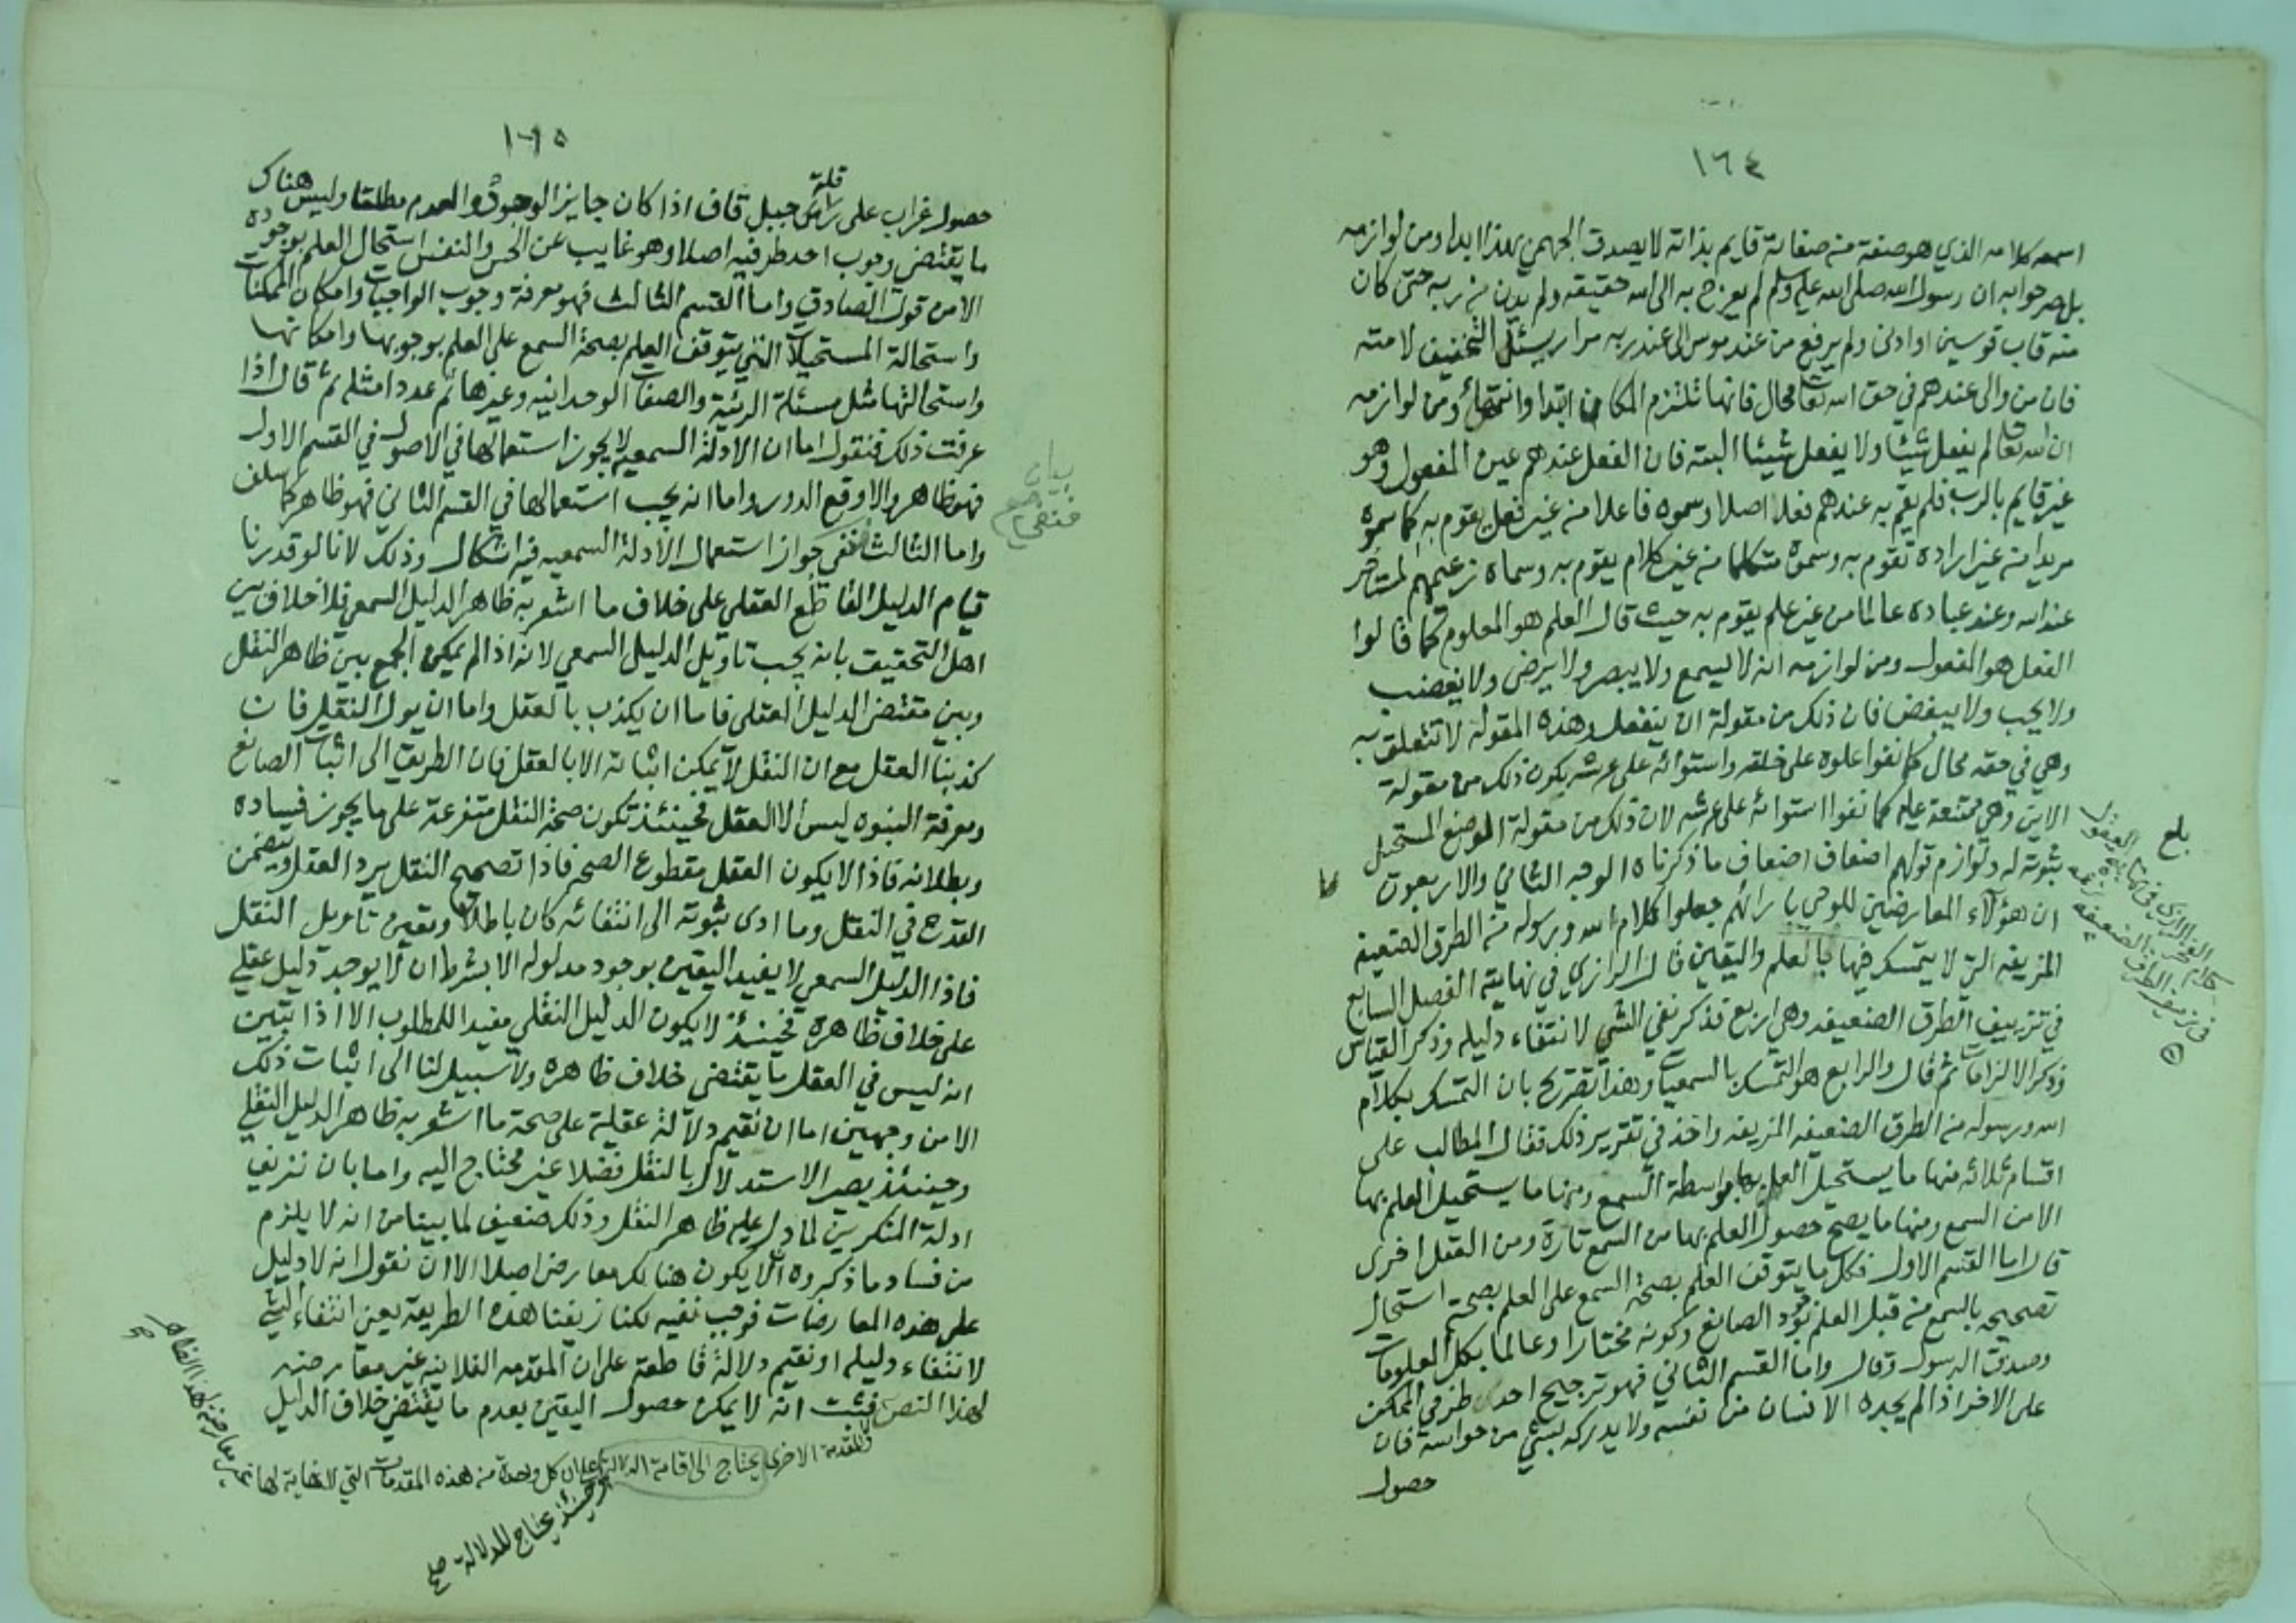 ١٦٤
اسمعه كلامه الذي هو صفة من صفاته قايم بذاته لا يصدق الجهمي بهذا ابدا ومن لوازمه
بل صر جوابه ان رسول الله صلى الله عليه وسلم لم يعرج به الى الله حقيقه ولم يدن من ربه حتى كان
منه قاب قوسين او ادنى ولم يرفع من عند موسى الى عند ربه مرارا يسئل التخفيف لامته
فان من والى عندهم في حق الله تعالى محال فانها تلتزم المكان ابتدا وانتهاء ومن لوازمه
ان الله تعالى لم يفعل شيئا ولا يفعل شيئا البته فان الفعل عندهم عين المفعول وهو
غير قايم بالرب فلم يقم به عندهم فعلا اصلا وسموه فاعلا من غير فعل يقوم به كما سموه
مريدا من غير ارادة تقوم به وسموه متكلما من غير كلام يقوم به وسماه زعيمهم المتاخر
عند الله وعند عباده عالما من غير علم يقوم به حيث قال العلم هو المعلوم كما قالوا
الفعل هو المفعول ومن لوازمه انه لا يسمع ولا يبصر ولا يرضى ولا يغضب
ولا يحب ولا يبغض فان ذلك من مقولة ان ينفعل وهذه المقولة لا تتعلق به
وهي في حقه محال كما نفوا علوه على خلقه واستوائه على عرشه بكون ذلك من مقولة
الاين وهي ممتنعة عليه كما نفوا استوائه على عرشه لان ذلك من مقولة الموضع المستحيل
ثبوته له ولوازم قولهم اضعاف اضعاف ما ذكرناه الوجه الثاني والاربعون
ان هؤلاء المعارضين للوحي بارائهم جعلوا كلام الله ورسوله من الطرق الضعيفه
المزيفه التي لا يتمسك فيها بالعلم واليقين قال الرازي في نهايته الفصل السابع
في تزييف الطرق الضعيفه وهي اربع فذكر نفي الشي لانتفاء دليله وذكر القياس
وذكر الالزامات ثم قال والرابع هو التمسك بالسمعيات وهذا تصريح بان التمسك بكلام
الله ورسوله من الطرق الضعيفه المزيفه واخذ في تقرير ذلك فقال المطالب على
اقسام ثلاثه منها ما يستحيل العلم بها بواسطة السمع ومنها ما يستحيل العلم بها
الا من السمع ومنها ما يصح حصول العلم بها من السمع تارة ومن العقل اخرى
قال اما القسم الاول فكل ما يتوقف العلم بصحة السمع على العلم بصحته استحال
تصحيحه بالسمع من قبل العلم بوجود الصانع وكونه مختارا وعالما بكل المعلومات
وصدق الرسول وقال واما القسم الثاني فهو ترجيح احد طرفي الممكن
على الاخر اذا لم يجده الانسان من نفسه ولا يدركه بشئ من حواسه فان
حصول
بلغ
كلام الفخر الرازي في
في تزييف الطرق الضعيفه
١٦٥
قلة
حصول غراب على راس جبل قاف اذا كان جايز الوجود والعدم مطلقا وليس هناك
ما يقتضي وجوب احد طرفيه اصلا وهو غايب عن الحس والنفس استحال العلم بوجوده
الا من قول الصادق واما القسم الثالث فهو معرفة وجوب الواجبات وامكان الممكنات
واستحالة المستحيلات التي يتوقف العلم بصحة السمع على العلم بوجوبها وامكانها
واستحالتها مثل مسئلة الرئية والصفات الوحدانيه وغيرها ثم عدد امثله ثم قال اذا
عرفت ذلك فنقول اما ان الادلة السمعيه لا يجوز استعمالها في الاصول في القسم الاول
فهو ظاهر والا وقع الدور واما انه يجب استعمالها في القسم الثاني فهو ظاهر كما سلف
واما الثالث ففي جواز استعمال الادلة السمعيه فيه اشكال وذلك لانا لو قدرنا
قيام الدليل القاطع العقلي على خلاف ما اشعر به ظاهر الدليل السمعي فلا خلاف بين
اهل التحقيق بانه يجب تاويل الدليل السمعي لانه اذا لم يمكن الجمع بين ظاهر النقل
وبين مقتضى الدليل العقلي فاما ان يكذب بالعقل واما ان يول النقل فان
كذبنا العقل مع ان النقل لا يمكن اثباته الا بالعقل فان الطريق الى اثبات الصانع
ومعرفة النبوه ليس الا العقل فحينئذ تكون صحة النقل متفرعة على ما يجوز فساده
وبطلانه فاذا لا يكون العقل مقطوع الصحه فاذا تصحيح النقل يرد العقل ويتضمن
القدح في النقل وما ادى ثبوته الى انتفائه كان باطلا وتعين تاويل النقل
فاذا الدليل السمعي لا يفيد اليقين بوجود مدلوله الا بشرط ان لا يوجد دليل عقلي
على خلاف ظاهره فحينئذ لا يكون الدليل النقلي مفيدا للمطلوب الا اذا تبين
انه ليس في العقل ما يقتضي خلاف ظاهره ولا سبيل لنا الى اثبات ذلك
الا من وجهين اما ان نقيم دلالة عقلية على صحة ما اشعر به ظاهر الدليل النقلي
وحينئذ يصير الاستدلال بالنقل فضلا غير محتاج اليه واما بان نزيف
ادلة المنكرين لما دل عليه ظاهر النقل وذلك ضعيف لما بينا من انه لا يلزم
من فساد ما ذكروه الا يكون هنالك معارض اصلا الا ان نقول انه لا دليل
على هذه المعارضات فوجب نفيه لكنا زيفنا هذه الطريقة يعني انتفاء الشي
لانتفاء دليله او نقيم دلالة قاطعة على ان المقدمه الفلانيه غير معارضه
لهذا النص فثبت انه لا يمكن حصول اليقين بعدم ما يقتضي خلاف الدليل
والمقدمة الاخرى يحتاج الى اقامة الدلالة على ان كل واحدة من هذه المقدمات التي لا نهاية لها غير معارضة لهذا الظاهر
وحينئذ يحتاج للدلالة صح
بيان